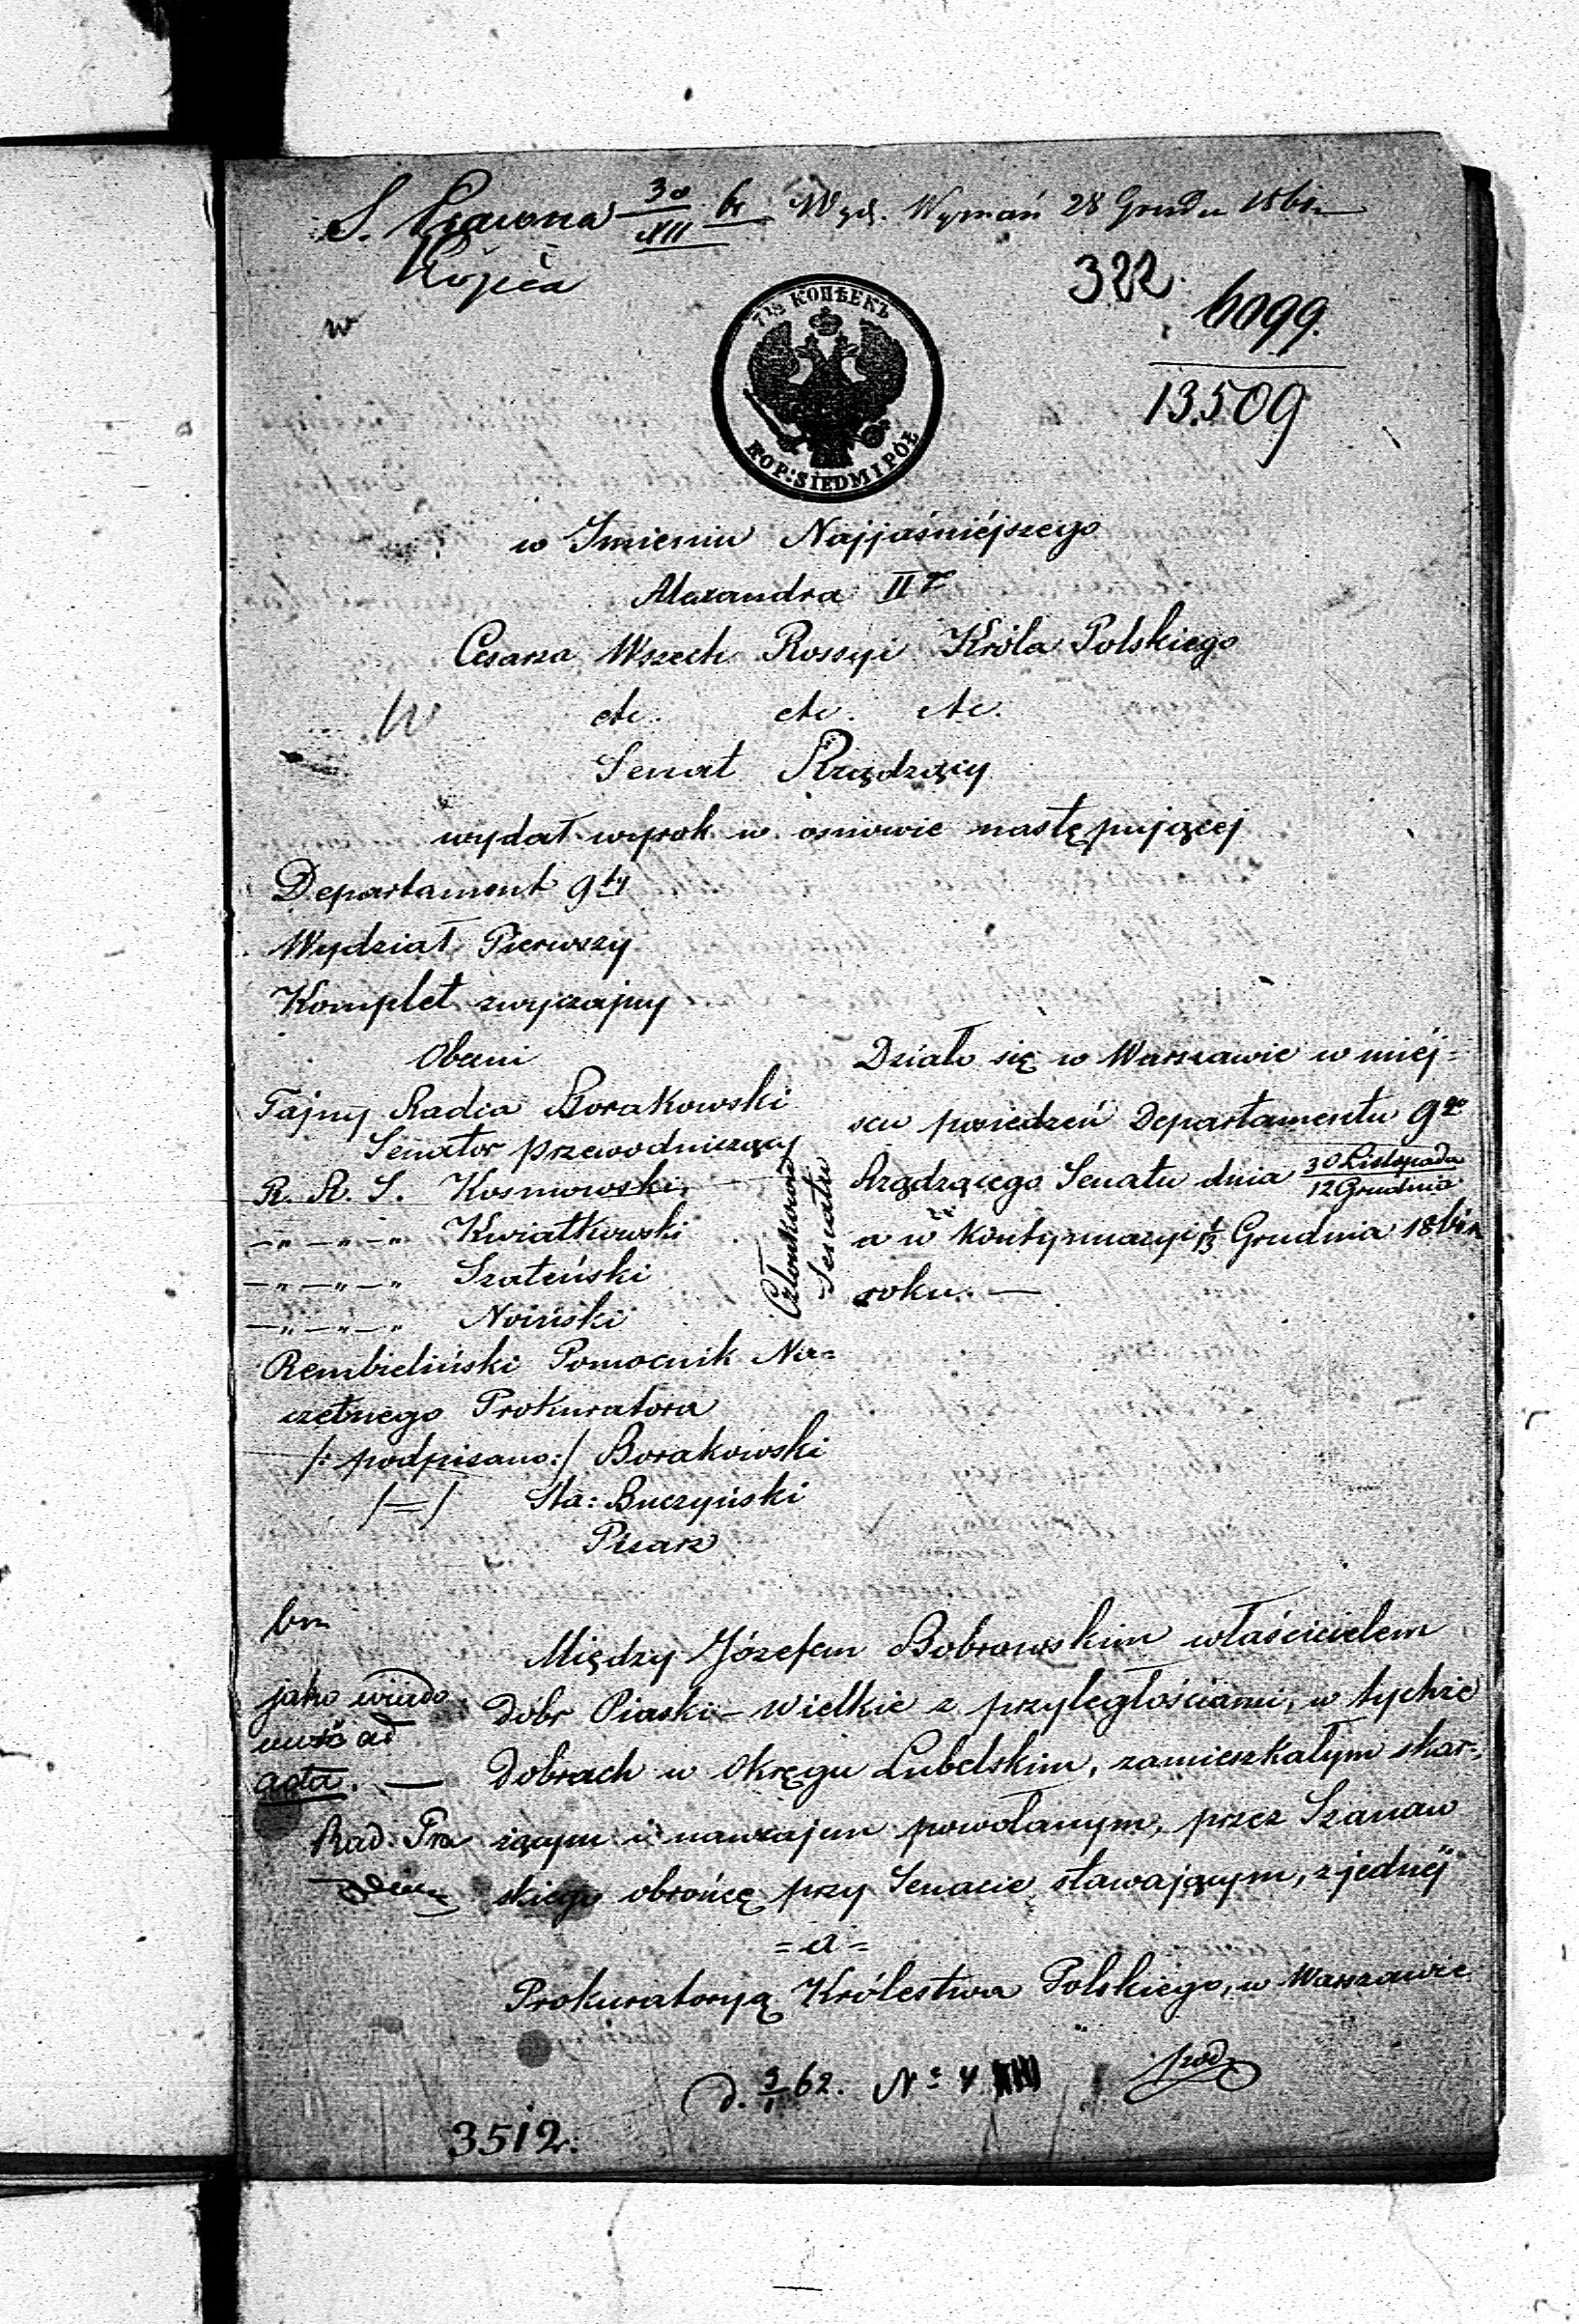 S. Prawna 30/XII 61 Wyd. Wyznań 28 Grudn 1861 r
Kopia
322.
w
6099.
13.509
7 1/2 КОПѢЕКЪ
KOP: SIEDM I PÓŁ
w Imieniu Najjaśniéjszego
Alexandra II go
Cesarza Wszech Rossyi Króla Polskiego
etc. etc. etc.
W
Senat Rządzący
wydał wyrok w osnowie następującej
Departament 9ty
Wydział Pierwszy
Komplet zwyczajny
Obecni
Tajny Radca Borakowski
Senator przewodniczący
R. R. S. Kosmowski
—„—„—„ Kwiatkowski
—„—„—„ Szateński
—„—„—„ Noiński
Członkowie Senatu
Rembieliński Pomocnik Na=
czelnego Prokuratora
/: podpisano :/ Borakowski
/—/ Sta: Buczyński
Pisarz
Działo się w Warszawie w miéj=
scu posiedzeń Departamentu 9go
Rządzącego Senatu dnia 30 Listopada/12 Grudnia
a w kontynuacyi 1/13 Grudnia 1861 r
roku. —
Między Józefem Bobrowskim właścicielem
Dóbr Piaski-Wielkie z przyległościami, w tychże
Dobrach w Okręgu Lubelskim, zamieszkałym skar=
żącym i nawzajem powołanym, przez Szanaw
skiego obrońcę przy Senacie stawającym, z jednéj
= a =
Prokuratoryą Królestwa Polskiego, w Warszawie
jako wiado
mość ad
acta. —
Rad. Pra
d. 3/1 62. No 4
3512.